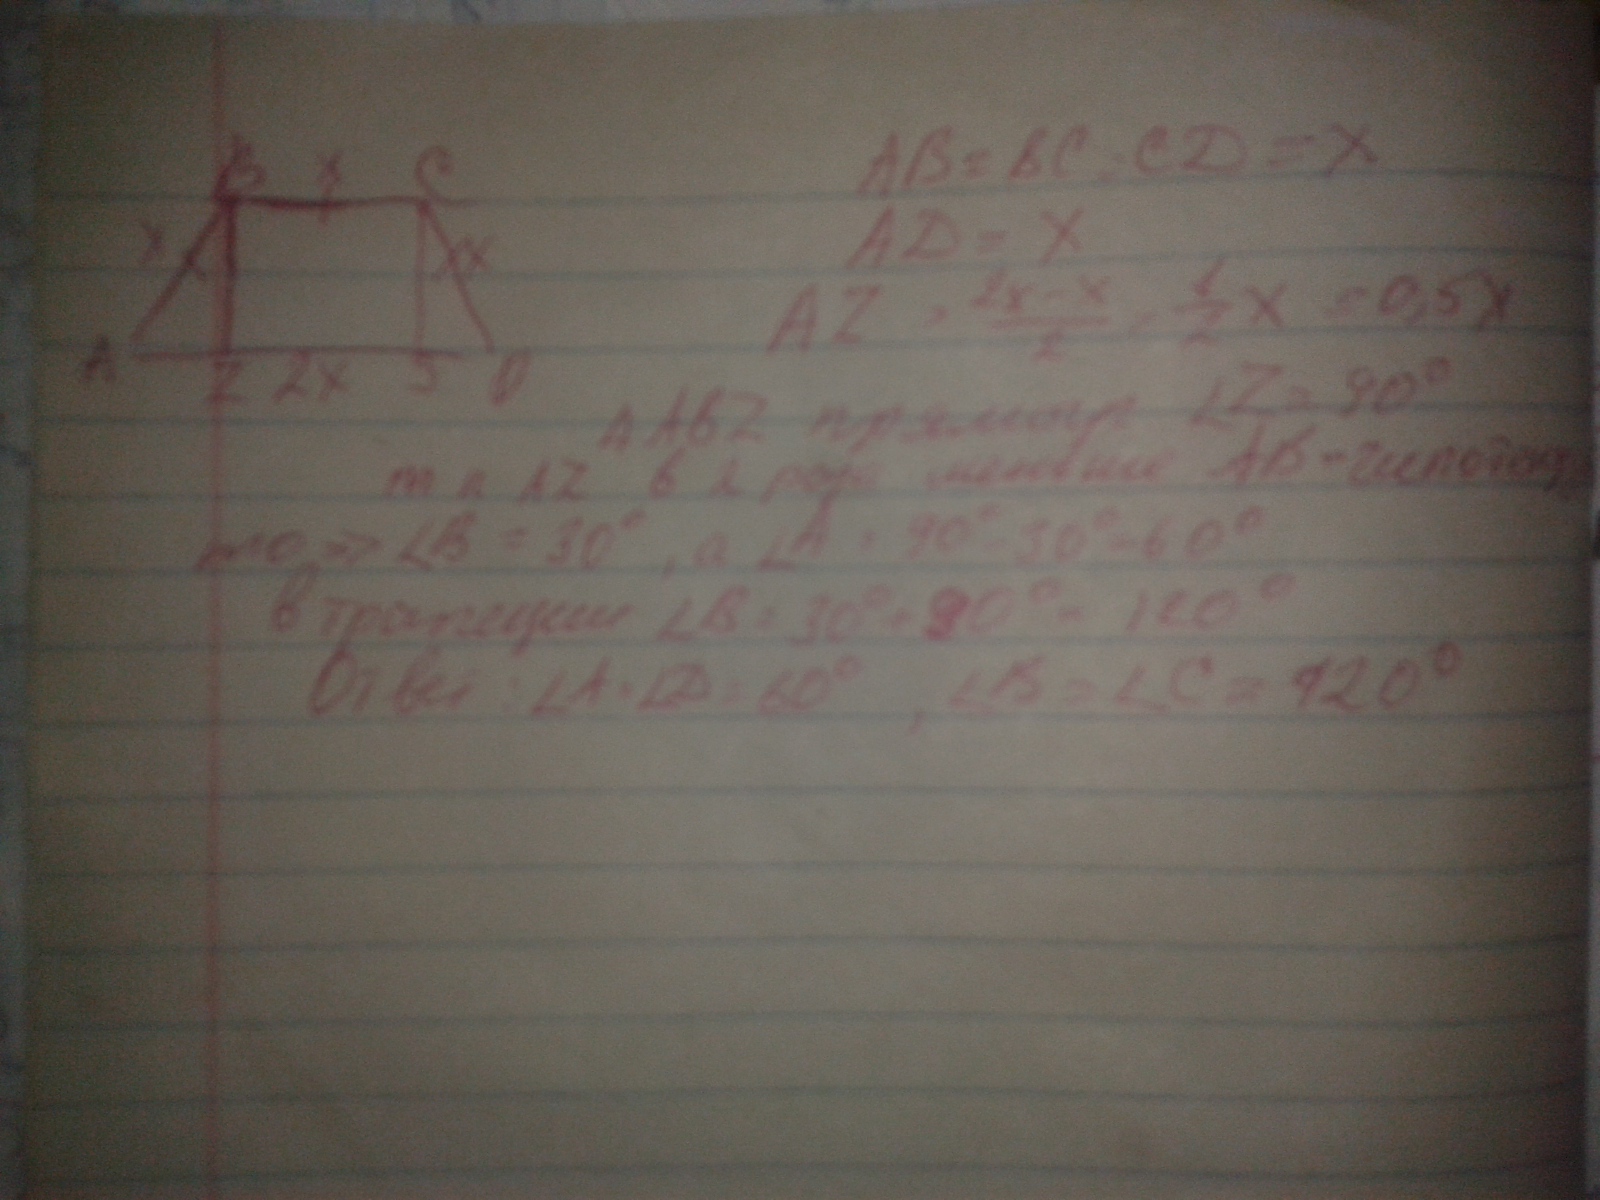 B x C
x x
A Z 2x J D
AB = BC = CD = x
AD = x
AZ = \frac{2x-x}{2} = \frac{1}{2}x = 0,5x
Δ ABZ прямоуг ∠Z = 90°
т к AZ в 2 раза меньше AB - гипотенуз
то, => ∠B = 30°, а ∠A = 90° - 30° = 60°
в трапеции ∠B = 30° + 90° = 120°
Ответ: ∠A = ∠D = 60°, ∠B = ∠C = 120°